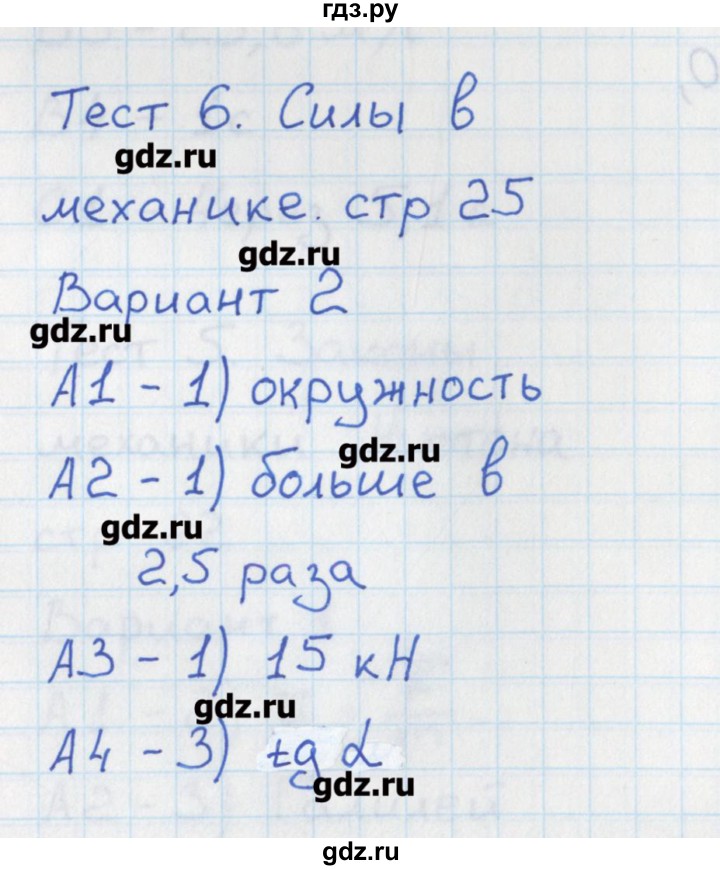 гдз.ру
Тест 6. Силы в
gdz.ru
механике. стр 25
gdz.ru
Вариант 2
gdz.ru
А1 - 1) окружность
gdz.ru
А2 - 1) больше в
gdz.ru
2,5 раза
А3 - 1) 15 кН
gdz.ru
А4 - 3) tg α
gdz.ru
gdz.ru